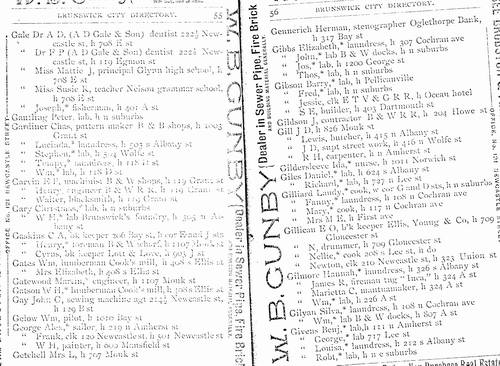 BRUNSWICK CITY DIRECTORY. 55
Gale Dr A D, (A D Gale & Son) dentist 222½ Newcastle st, h 708 E st
" Dr F P (A D Gale & Son) dentist 222½ Newcastle st, h 119 Egmon st
" Miss Mattie J, principal Glynn high school, h 708 E st
" Miss Susie K, teacher Neison grammar school, h 708 E st
" Joseph,* fisherman, h 401 A st
Gantling Peter, lab, h n suburbs
Gardiner Chas, pattern maker B & B shops, h 1005 Grant st
" Lucinda,* laundress, h 503 s Albany
" Stephen,* lab, h 504 Wolfe st
" Tempy,* laundress, h
" Wm,* lab, h 118 D st
Garvin E P, machinist B & W shops, h 119 Grant st
" Henry, engineer B & W R R, h 119 Grant st
" Walter, blacksmith, h 119 Grant st
Gary Christmas,* lab, h n suburbs
" W H,* lab Brunswick's foundry, h 305 n Albany st
Gaskins C A, bk keeper 206 Bay st, h cor F and J sts
" Henry,* foreman B & W wharf, h 1107 Monk st
" Cyrus, bk keeper Lott & Love, h 903 J st
Gates Wm, lumberman Cook's mill, h 408 s Ellis st
" Mrs Elizabeth, h 408 s Ellis st
Gatewood Marian,* engineer, h 1107 Monk st
Gatson W H,* lumberman Cooks' mill, h 308 Ellis st
Gay John G, sewing machine agt 214½ Newcastle st, h 129 B st
Gelow Wm, pilot, h 1010 Bay st
George Alex,* sailor, h 219 n Amherst st
" Frank, clk 120 Newcastle st, h 501 Newcastle st
" W H, painter, h 609 Mansfield st
Getchell Mrs L, h 707 Monk st
OFFICE No. 101 NEWCASTLE STREET
W. B. GUNBY
Dealer in Sewer Pipe, Fire Brick
56 BRUNSWICK CITY DIRECTORY.
Gennerich Herman, stenographer Oglethorpe Bank, h 317 Bay st
Gibbs Elizabeth,* laundress, h 307 Cochran ave
" John,* lab B & W docks, h n suburbs
" Jos,* lab, h 1200 George st
" Thos,* lab, h n suburbs
Gibson Barry,* lab, h Pellicerville
" Fred,* lab, h n suburbs
" Jessie, clk E T V & G R R, h Ocean hotel
" S E, builder, h 403 Dartmouth st
Gildson J, contractor B & W R R, h 204 Howe st
Gill J D, h 826 Monk st
" Lewis, butcher, h 415 n Albany st
" J D, supt street work, h 416 n Wolfe st
" R H, carpenter, h n Amherst st
Gildersleeve Ida,* nurse, h 1011 Norwich st
Giles Daniel,* lab, h 624 s Albany st
" Richard,* lab, h 737 n Lee st
Gilliard Landy,* cook, w cor G and D sts, h n suburbs
" Fanny,* laundress, h 108 n Cochran ave
" Mary,* cook, h 117 n Cochran ave
" Mrs M E, h First ave
Gillican E O, b'k keeper Ellis, Young & Co, h 709 Gloucester st
" N, drummer, h 709 Gloucester st
" Nellie,* cook 208 s Lee st, h do
" Newton, clk 210 Newcastle st, h 323 Union st
Gilmore Hannah,* laundress, h 326 s Albany st
" James R, fireman tug "Inca," h 324 A st
" Marietta C, mantuamaker, h 324 A st
" Wm,* lab, h 226 A st
Gilyan Silva,* laundress, h 108 n Cochran ave
" Wm,* lab B & W docks, h 807 A st
Givens Benj,* lab, h 111 n Amherst st
" George,* lab 717 Lee st
" Louisa,* laundress, h 212 s Albany st
" Robt,* lab, h n e suburbs
W. B. GUNBY
Dealer in Sewer Pipe, Fire Brick
AND BUILDING MATERIAL GENERALLY.
OFFICE, No. 101 NEWCASTLE
Purchase Real Estate